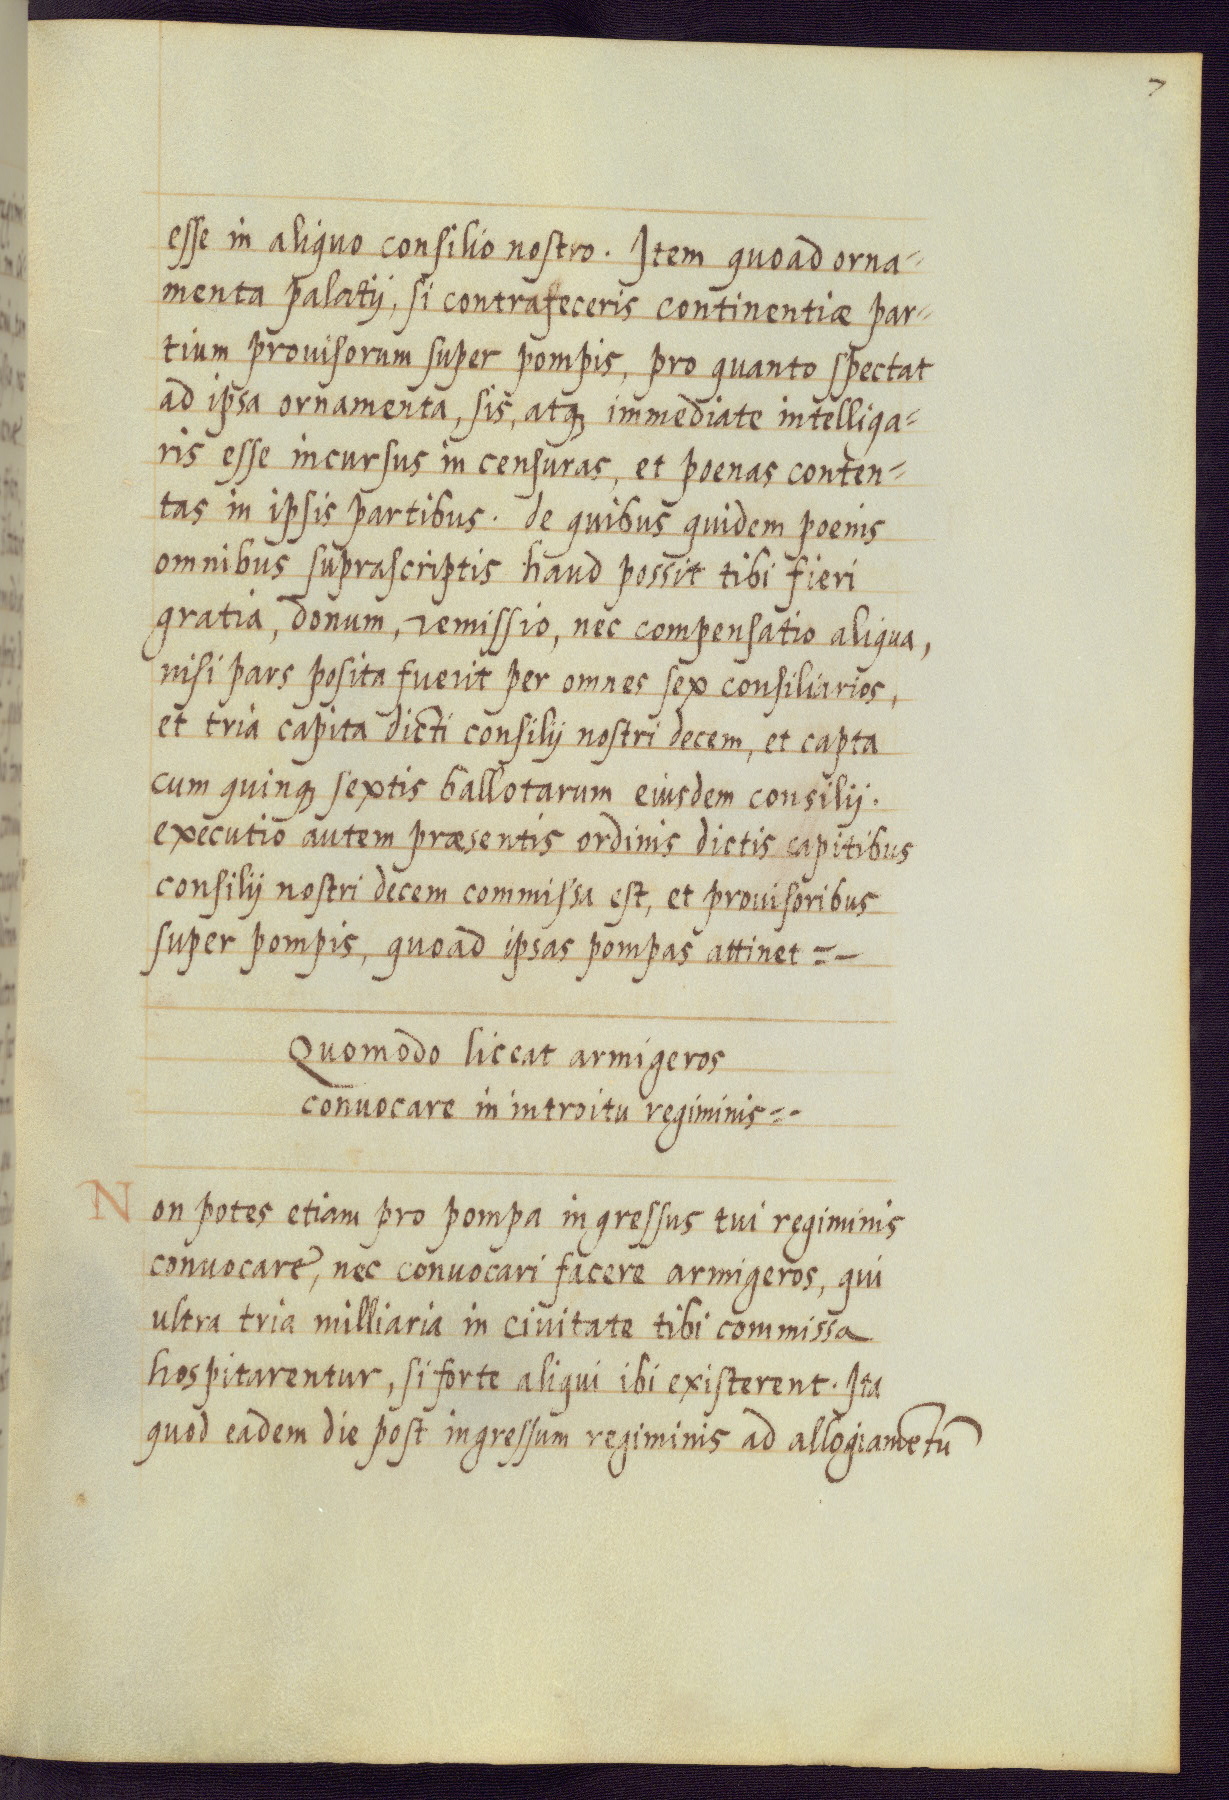 7
esse in aliquo consilio nostro. Item quoad orna=
menta palatij, si contrafeceris continentiæ par=
tium provisorum super pompis, pro quanto spectat
ad ipsa ornamenta, sis, atqꝫ immediate intelliga=
ris esse incursus in censuras, et poenas conten=
tas in ipsis partibus. de quibus quidem poenis
omnibus suprascriptis haud possit tibi fieri
gratia, donum, remissio, nec compensatio aliqua,
nisi pars posita fuerit per omnes sex consiliarios,
et tria capita dicti consilij nostri decem, et capta
cum quinqꝫ sextis ballotarum eiusdem consilij.
executio autem præsentis ordinis dictis capitibus
consilij nostri decem commissa est, et provisoribus
super pompis, quoad ipsas pompas attinet =-
Quomodo liceat armigeros
convocare in introitu regiminis=-
Non potes etiam pro pompa ingressus tui regiminis
convocare, nec convocari facere armigeros, qui
ultra tria milliaria in civitate tibi commissa
hospitarentur, si forte aliqui ibi existerent. Ita
quod eadem die post ingressum regiminis ad allogiametū